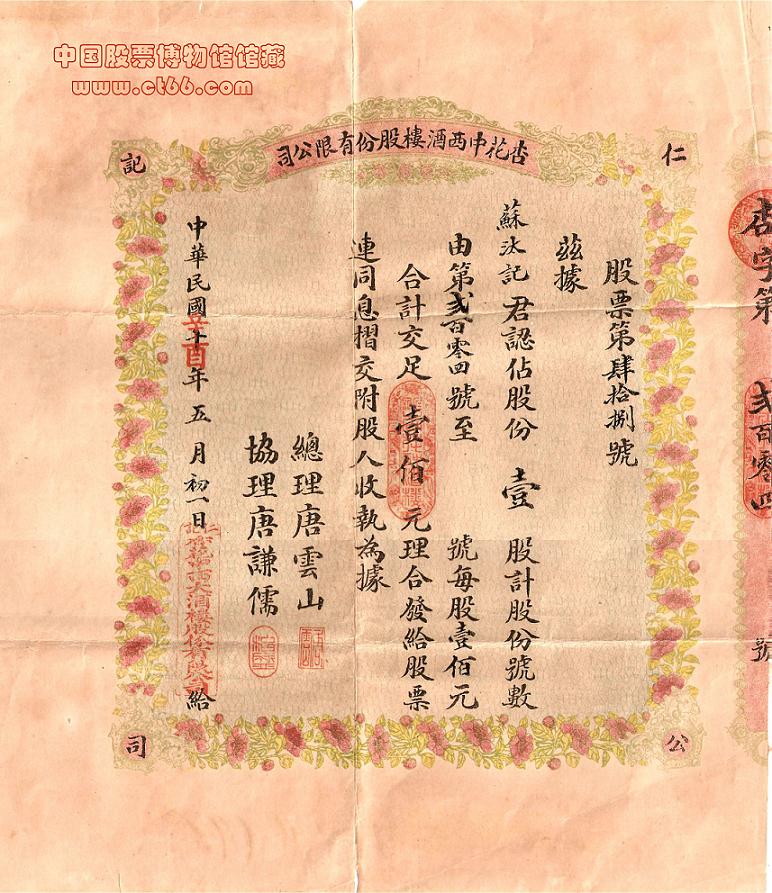 中国股票博物馆馆藏
www.ct66.com
杏花中西酒樓股份有限公司
仁
記
公
司
股票第肆拾捌號
茲據
蘇汰記君認佔股份壹股計股份號數
由第弍百零四號至號每股壹佰元
合計交足壹佰元理合發給股票
連同息摺交附股人收執為據
總理唐雲山
協理唐謙儒
中華民國辛酉十年五月初一日
給
杏字第弍百零四號